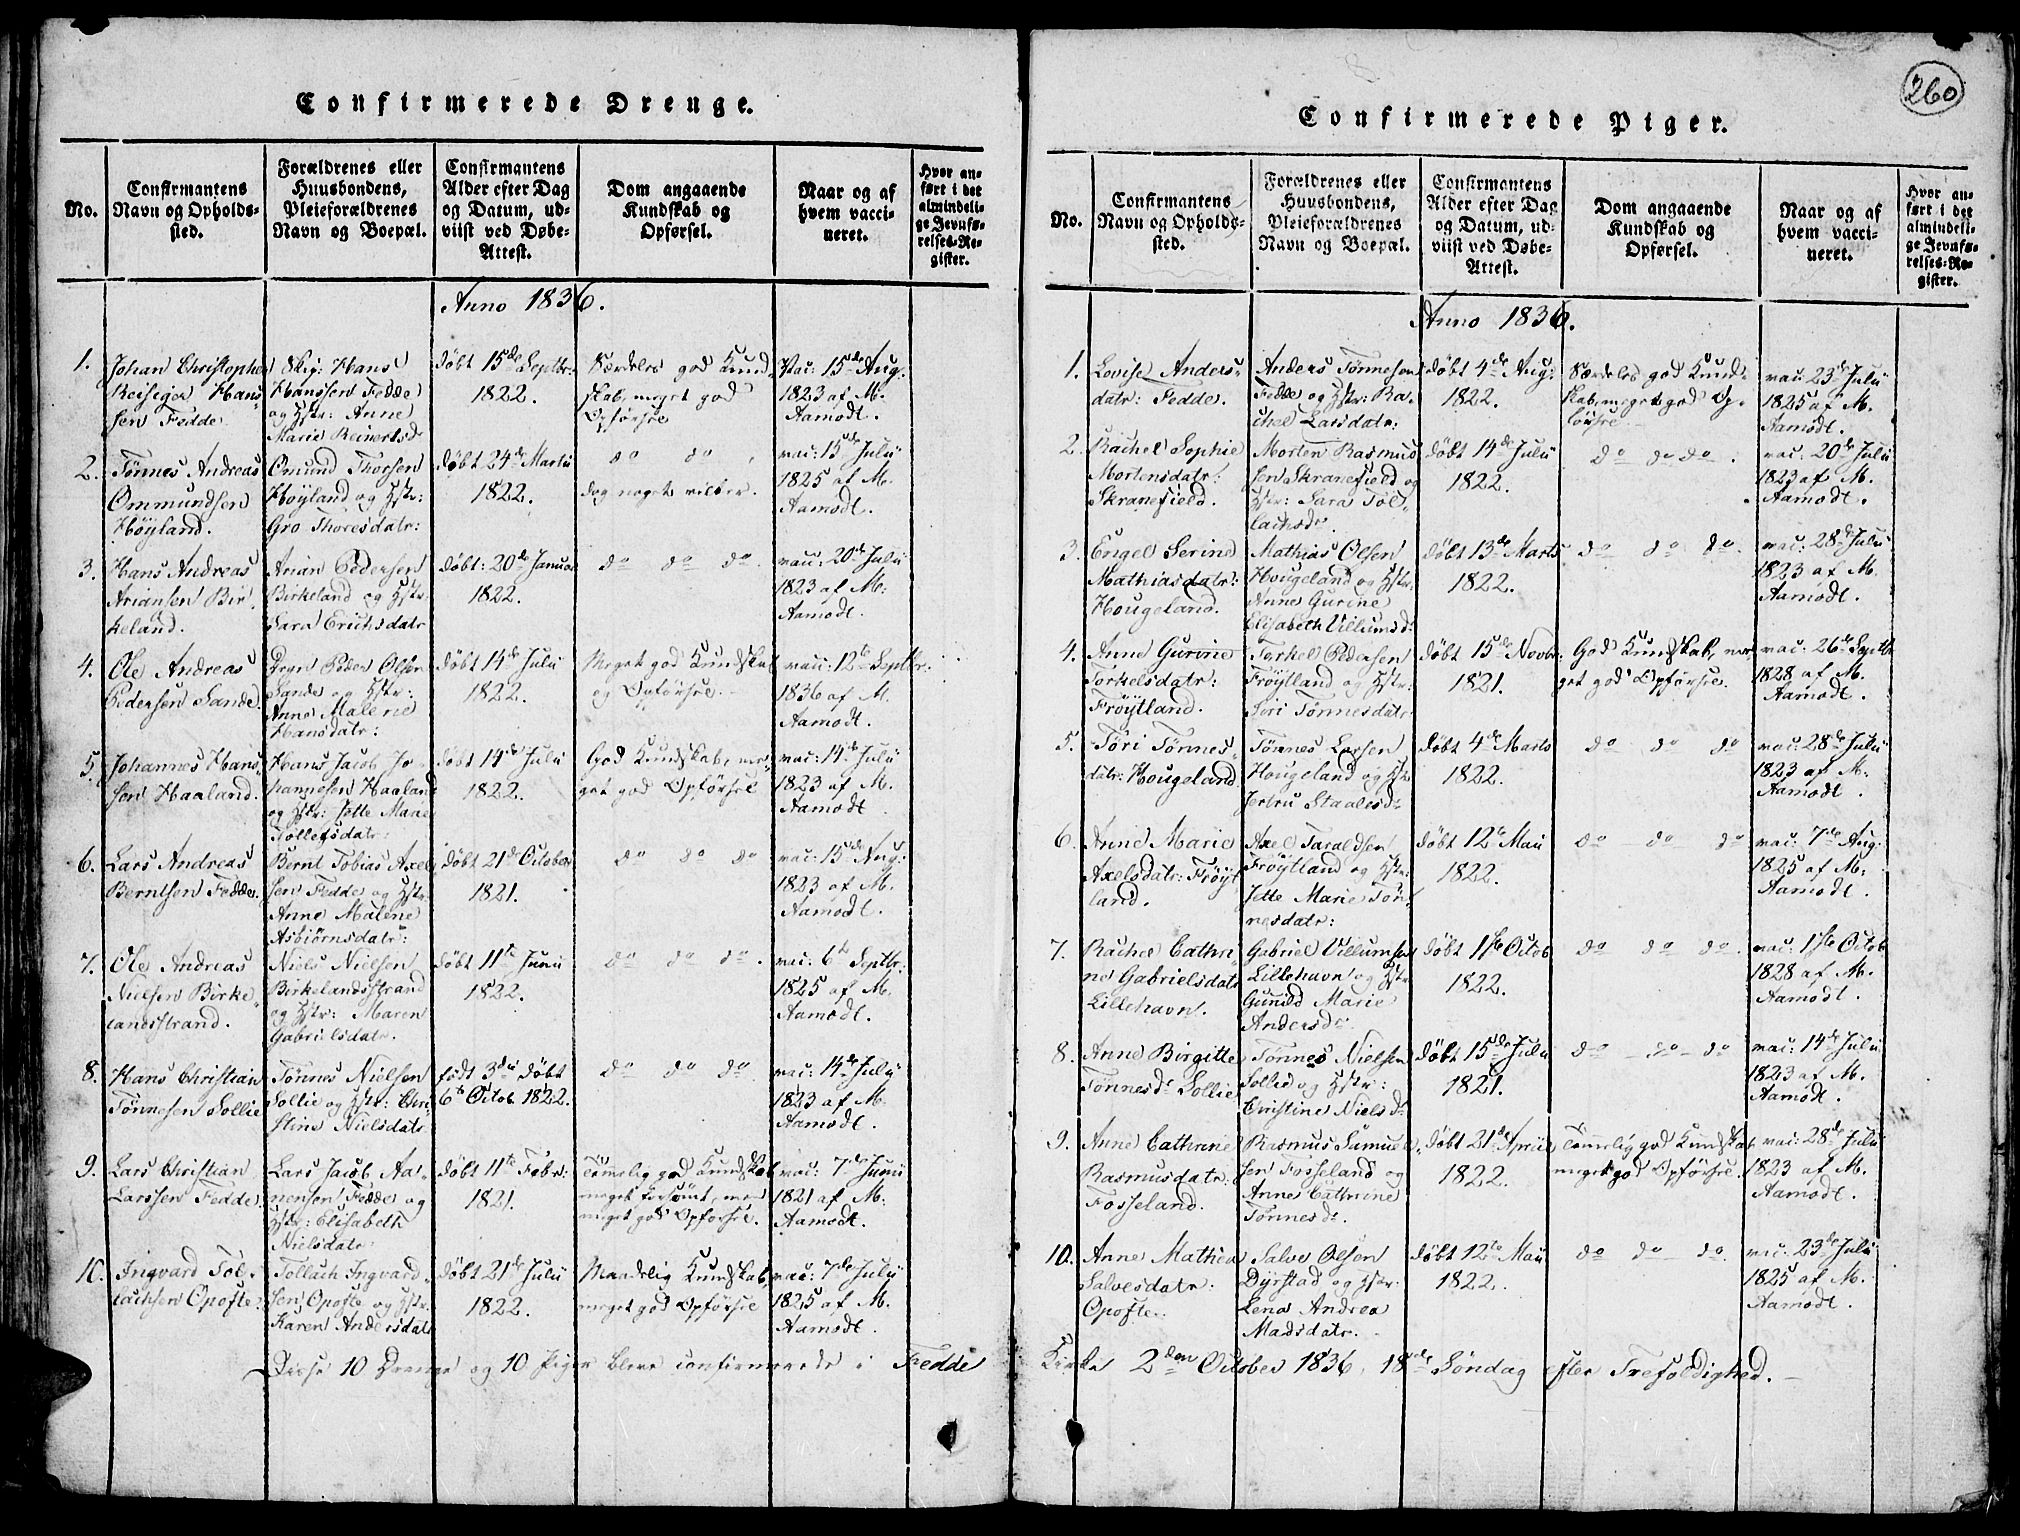 260
Confirmerede Drenge.
No.
Confirmantens
Navn og Opholds-
sted.
Forældrenes eller
Huusbondens,
Pleieforældrenes
Navn og Boepæl.
Confirmantens
Alder efter Dag
og Datum, ud-
viist ved Døbe-
Attest.
Dom angaaende
Kundskab og
Opførsel.
Naar og af
hvem vacci-
neret.
Hvor an-
ført i det
almindeli-
ge Jevnfø-
relses-Re-
gister.
Anno 1836.
1.
Johan Christopher
Reisiger Hans-
sen Fedde
Skip: Hans
Hanssen Fedde
og Hstr: Anne
Marie Reinertsdr
døbt 15de Septbr:
1822.
Særdeles god Kund-
skab, meget god
Opførsel
Vac: 15de Aug:
1823 af M.
Aamodt.
2.
Tønnes Andreas
Ommundsen
Høyland.
Omund Thorsen
Høyland og Hstr:
Gro Thoresdatr:
døbt 24de Martii
1822.
do do
dog noget
vac: 15de Julii
1825 af M.
Aamodt.
3.
Hans Andreas
Ariansen Bir-
keland.
Arian Pedersen
Birkeland og Hstr:
Sara Erichsdatr
døbt: 20de Januar
1822.
do do do
vac: 20de Julii
1823 af M:
Aamodt.
4.
Ole Andreas
Pedersen Sande.
Degn Peder Olsen
Sande og Hstr:
Anne Malene
Hansdatr:
døbt 14de Julii
1822.
Meget god Kundskab
og Opførsel.
vac: 12te Septbr:
1836 af M.
Aamodt.
5.
Johannes Hans-
sen Haaland.
Hans Jacob Jo-
hannesen Haaland
og Hstr: Jette Marie
Tollefsdatr:
døbt 14de Julii
1822.
God Kundskab, me-
get god Opførsel
vac: 14de Julii
1823 af M.
Aamodt.
6.
Lars Andreas
Berntsen Fedde.
Bernt Tobias Axel-
sen Fedde og Hstr:
Anne Malene
Asbiørnsdatr:
døbt 21de October
1821.
do do do
vac: 15de Aug:
1823 af M.
Aamodt.
7.
Ole Andreas
Nielsen Birke-
landsstrand.
Niels Nielsen
Birkelandsstrand
og Hstr: Maren
Gabrielsdatr.
døbt 11te Junii
1822.
do do do.
vac: 6te Septbr:
1825 af M.
Aamodt.
8.
Hans Christian
Tønnesen Sollie
Tønnes Nielsen
Sollie og Hstr: Chri-
stine Nielsdatr
født 3die døbt
6te Octob. 1822.
do do do
vac: 14de Julii
1823 af M.
Aamodt.
9.
Lars Christian
Larssen Fedde.
Lars Jacob Aa-
nensen Fedde og
Hstr: Elisabeth
Nielsdatr
døbt 11te Febr:
1821.
Temelig god Kundskab
meget forsømt, men
meget god Opførsel.
vac: 7de Junii
1821 af M.
Aamodt.
10.
Ingvard Tol-
lachsen Opofte.
Tollach Ingvard-
sen Opofte og Hstr
Karen Andersdatr
døbt 21de Julii
1822.
Maadelig Kundskab,
meget god Opførsel
vac: 7de Julii
1825 af M.
Aamodt.
Disse 10 Drenge og 10 Piger bleve confirmerede i Fedde
Confirmerede Piger.
No.
Confirmantens
Navn og Opholds-
sted.
Forældrenes eller
Huusbondens,
Pleieforældrenes
Navn og Boepæl.
Confirmantens
Alder efter Dag
og Datum, ud-
viist ved Døbe-
Attest.
Dom angaaende
Kundskab og
Opførsel.
Naar og af
hvem vacci-
neret.
Hvor an-
ført i det
almindeli-
ge Jevnfø-
relses-Re-
gister.
Anno 1836.
1.
Lovise Anders-
datr: Fedde.
Anders Tønnesen
Fedde og Hstr: Ra-
chel Larsdatr:
døbt 4de Aug:
1822.
Særdeles god Kund-
skab, meget god Op-
førsel
vac: 23de Julii
1825 af M.
Aamodt.
2.
Rachel Sophie
Mortensdatr:
Skranefield.
Morten Rasmus
sen Skranefield og
Hstr: Sara Tol-
lachsdr.
døbt 14de Julii
1822.
do do do.
vac. 20de Julii
1823 af M.
Aamodt.
3.
Engel Serine
Mathiasdatr:
Hougeland.
Mathias Olsen
Hougeland og Hstr:
Anne Gurine
Elisabeth Villumsdr
døbt 13de Marts
1822.
do do do.
vac: 28de Julii
1823 af M.
Aamodt.
4.
Anne Gurine
Torkelsdatr:
Frøytland.
Torkel Pedersen
Frøytland og Hstr:
Siri Tønnesdatr
døbt 15de Novbr:
1821.
God Kundskab, me-
get god Opførsel.
vac: 26de Septbr
1828 af M.
Aamodt.
5.
Tøri Tønnes-
datr: Hougeland
Tønnes Larsen
Hougeland og Hstr
Jertru Staalesdr
døbt 4de Marts
1822.
do do do
vac: 28de Julii
1823 af M.
Aamodt.
6.
Anne Marie
Axelsdatr: Frøyt
land.
Axel Taraldsen
Frøytland og Hstr:
Jette Marie Tøn-
nesdatr:
døbt 12te Maii
1822.
do do do
vac: 7de Aug:
1825 af M.
Aamodt.
7.
Rachel Cathri-
ne Gabrielsdatr
Lillehavn.
Gabriel Villumsen
Lillehavn og Hstr
Gunild Marie
Andersdr.
døbt 1ste Octob
1822.
do do do.
vac: 1ste Octob
1828 af M.
Aamodt.
8.
Anne Birgitte
Tønnesdr Sollie
Tønnes Nielsen
Sollie og Hstr:
Christine Nielsdr
døbt 15de Julii
1821.
do do do
vac: 14de Julii
1823 af M.
Aamodt.
9.
Anne Cathrine
Rasmusdatr:
Fosseland.
Rasmus Samuel-
sen Fosseland og
Anne Cathrine
Tønnesdr.
døbt 21de April
1822.
Temelig god Kundskab
meget god Opførsel.
vac: 28de Julii
1823 af M.
Aamodt.
10.
Anne Mathea
Salvesdatr:
Opofte.
Salve Olsen
Dyrstad og Hstr:
Lena Andrea
Madsdatr.
døbt 12te Maii
1822.
do do do.
vac: 23de Julii
1825 af M.
Aamodt.
Kirke 2den October 1836, 18de Søndag efter Trefoldighed.